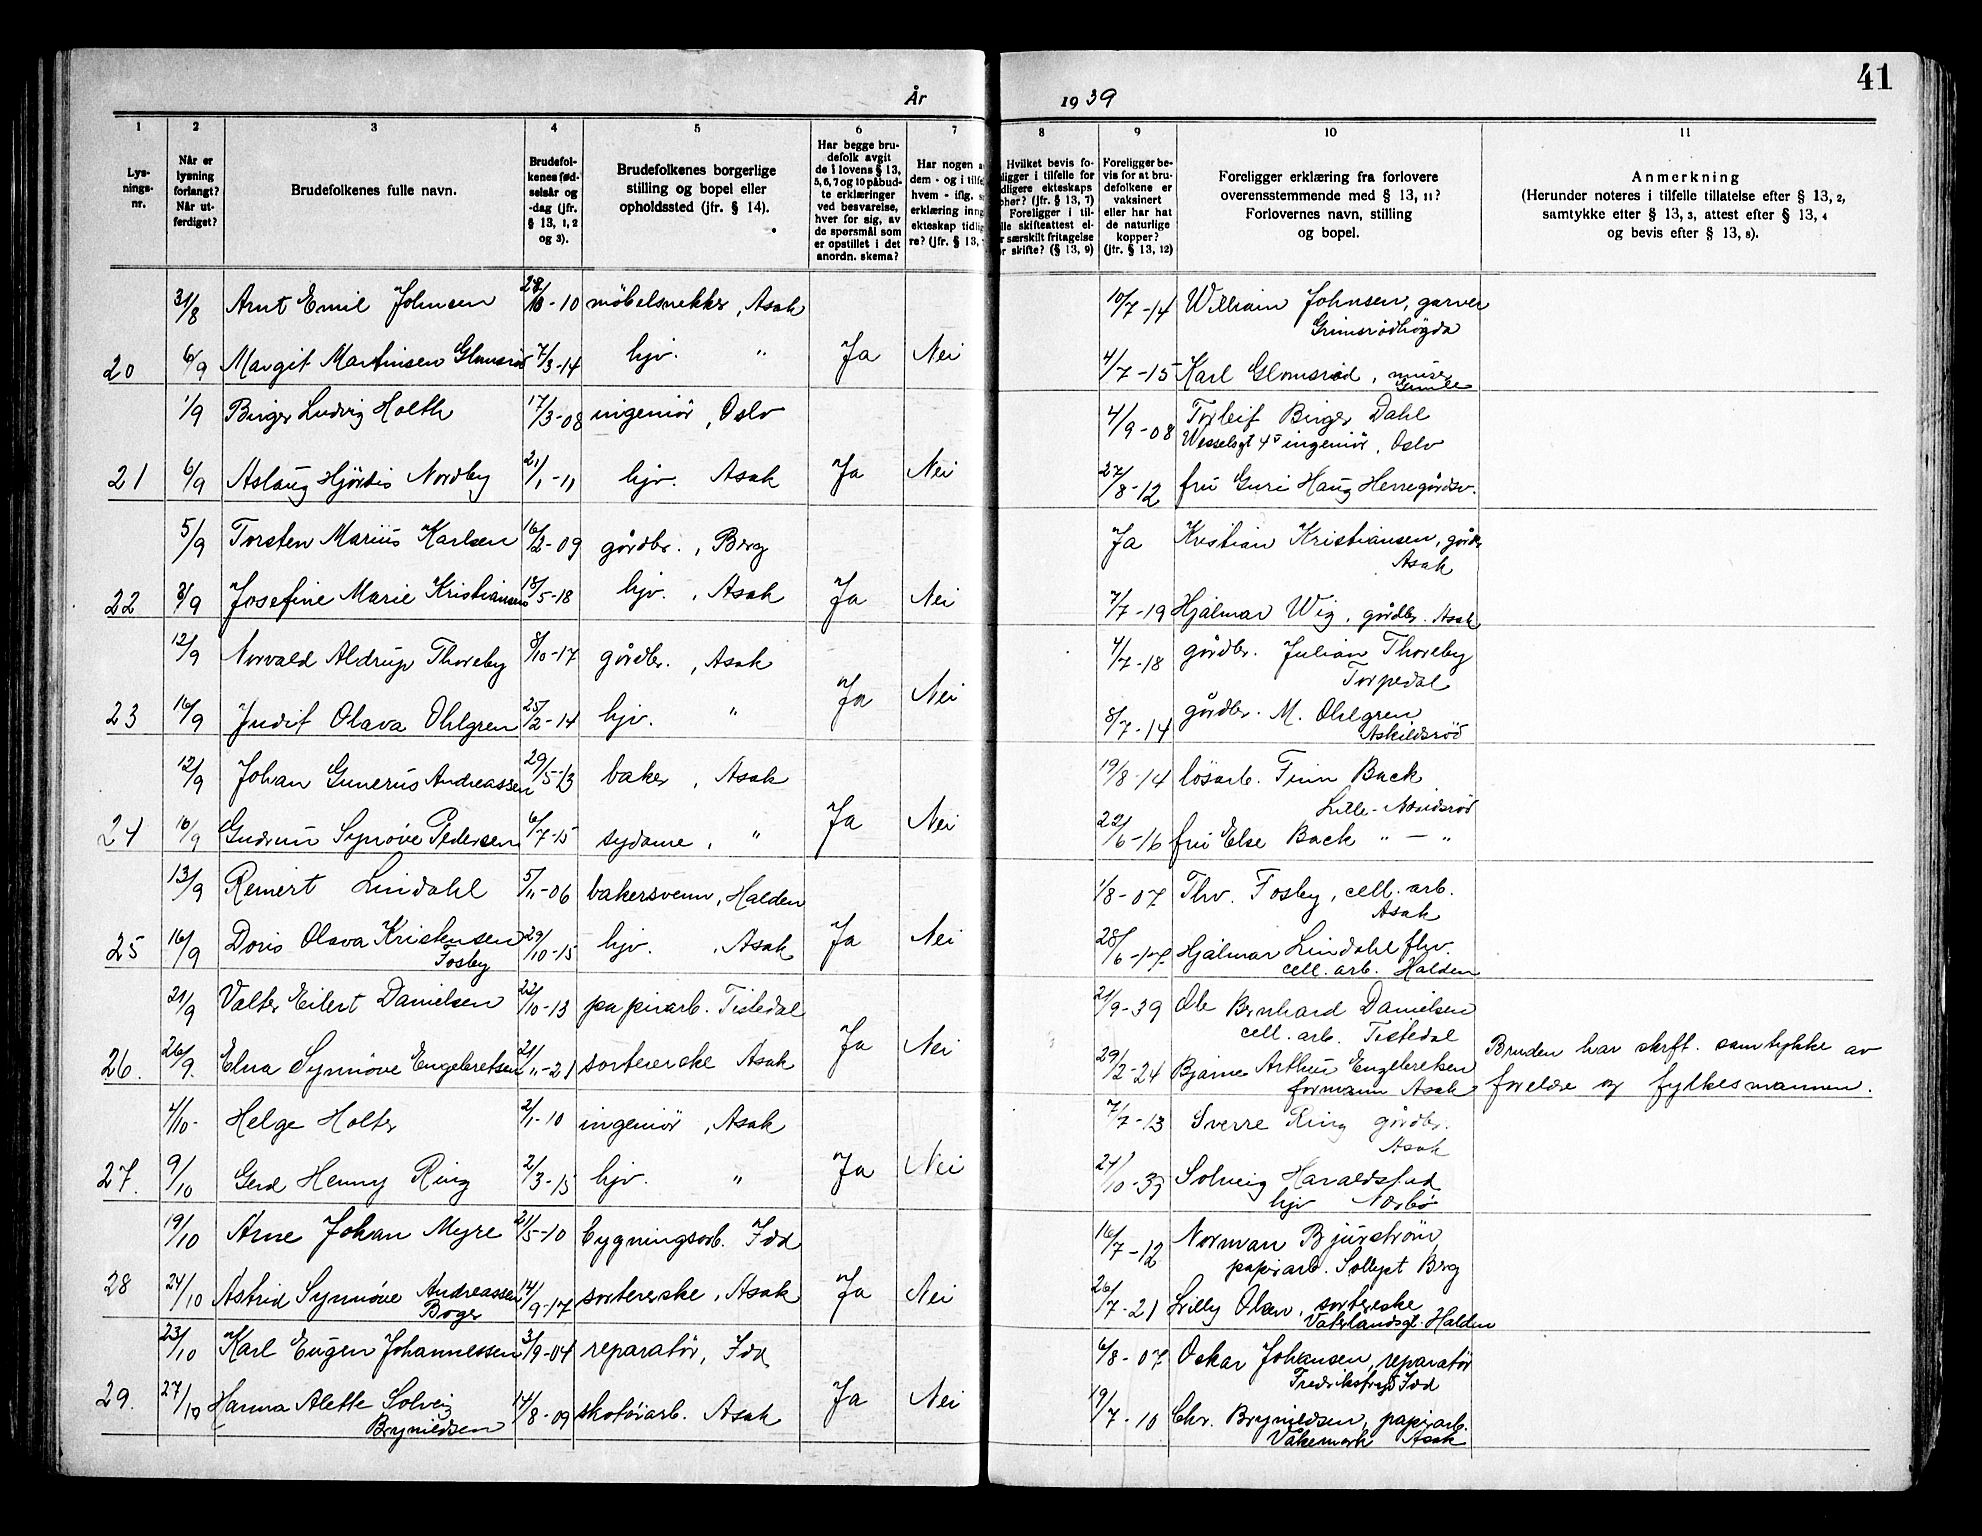 41
År 1939
1 2 3 4 5 6 7 8 9 10 11
Lys-
nings-
nr.
Når er
lysning
forlangt?
Når ut-
ferdiget?
Brudefolkenes fulle navn.
Brudefol-
kenes fød-
selsår og
-dag (jfr.
§ 13, 1, 2
og 3).
Brudefolkenes borgerlige
stilling og bopel eller
opholdssted (jfr. § 14).
Har begge bru-
defolk avgit
de i lovens § 13,
5, 6, 7 og 10 påbud-
te erklæringer
ved besvarelse,
hver for sig, av
de spørsmål som
er opstillet i det
anordn. skema?
Har nogen a
dem - og i tilfel
hvem - iflg.
erklæring inng
ekteskap tidlig
re? (Jfr. § 13,
Hvilket bevis fo-
ligger i tilfelle for
dligere ekteskaps
pher? (jfr. § 13, 7)
Foreligger i til-
lle skifteattest el-
r særskilt fritagelse
r skifte? (§ 13, 9)
Foreligger be-
vis for at bru-
defolkene er
vaksinert
eller har hat
de naturlige
kopper?
(jfr. § 13, 12)
Foreligger erklæring fra forlovere
overensstemmende med § 13, 11?
Forlovernes navn, stilling
og bopel.
Anmerkning
(Herunder noteres i tilfelle tillatelse efter § 13, 2,
samtykke efter § 13, 3, attest efter § 13, 4
og bevis efter § 13, 8).
31/8 Arnt Emil Johnsen 28/10-10 møbelsnekker, Asak 10/7-14 William Johnsen, garver
Grimsrødhögda
20 6/9 Margit Martinsen Glomsrød 7/3-14 hjv. " Ja Nei 4/7-15 Karl Glomsrød,
1/9 Birger Ludvig Holth 17/3-08 ingeniör, Oslo 4/9-08 Torleif Birger Dahl
Wesselsgt 45 ingeniör, Oslo
21 6/9 Aslaug Hjördis Nordby 21/1-11 hjv. Asak Ja Nei 27/8-12 fru Guri Haug Herregårdsv.
5/9 Torsten Marius Karlsen 16/2-09 gårdbr., Berg Ja Kristian Kristiansen, gårdbr
Asak
22 8/9 Josefine Marie Kristiansen 18/5-18 hjv., Asak Ja Nei 7/7-19 Hjalmar Wig, gårdbr. Asak
12/9 Norvald Aldrup Thoreby 8/10-17 gårdbr., Asak 4/7-18 gårdbr. Julian Thoreby
Torpedal
23 16/9 Judit Olava Ohlgren 25/2-14 hjv. " Ja Nei 8/7-14 gårdbr. M. Ohlgren
Askildsröd
12/9 Johan Gunerius Andreassen 29/5-13 baker, Asak 19/8-14 lösarb. Finn Back
Lille-
24 16/9 Gudrun Synöve Pedersen 6/7-15 sydame, " Ja Nei 22/6-16 fru Else Back " — "
13/9 Reinert Lindahl 5/11-06 bakersvenn, Halden 1/8-07 Thv. Fosby, cell. arb.
Asak
25 16/9 Doris Olava Kristensen 29/10-15 hjv., Asak Ja Nei 28/6-17 Hjalmar Lindahl flyv.
Fosby cell. arb. Halden
21/9 Valter Eilert Danielsen 22/10-13 papirarb. Tistedal 21/9-39 Ole Bernhard Danielsen
cell. arb. Tistedal
26. 26/9. Elna Synnöve Engebretsen 21/11-21 sorterske Asak Ja Nei 29/2-24 Bjarne Arthur Engebretsen
formann Asak
Bruden har skrft. samtykke av
foreldre og fylkesmannen.
4/10- Helge Holter 2/1-10 ingeniör, Asak 7/7-13 Sverre Ring gårdbr.
Asak
27. 9/10 Gerd Henny Ring 2/3-15 hjv. " Ja Nei 21/10-39 Solveig Haraldstad
hjv
19/10 Arne Johan Myre 21/5-10 bygningsarb. Idd 16/7-12 Norman Bjurström
papirarb. Berg
28 24/10 Astrid Synnöve Andreassen 14/9-17 sorterske, Asak Ja Nei 26/7-21 Lilly Olsen, sorterske
Boger Vaterlandsgt. Halden
23/10 Karl Eugen Johannessen 3/9-04 reparatör, Idd 6/8-07 Oskar Johansen, reparatör
Fredriksfryd Idd
29. 27/10 Hanna Alette Solveig 14/8-09 skotöiarb. Asak Ja Nei 19/7-10 Chr. Brynildsen, papirarb.
Brynildsen Asak